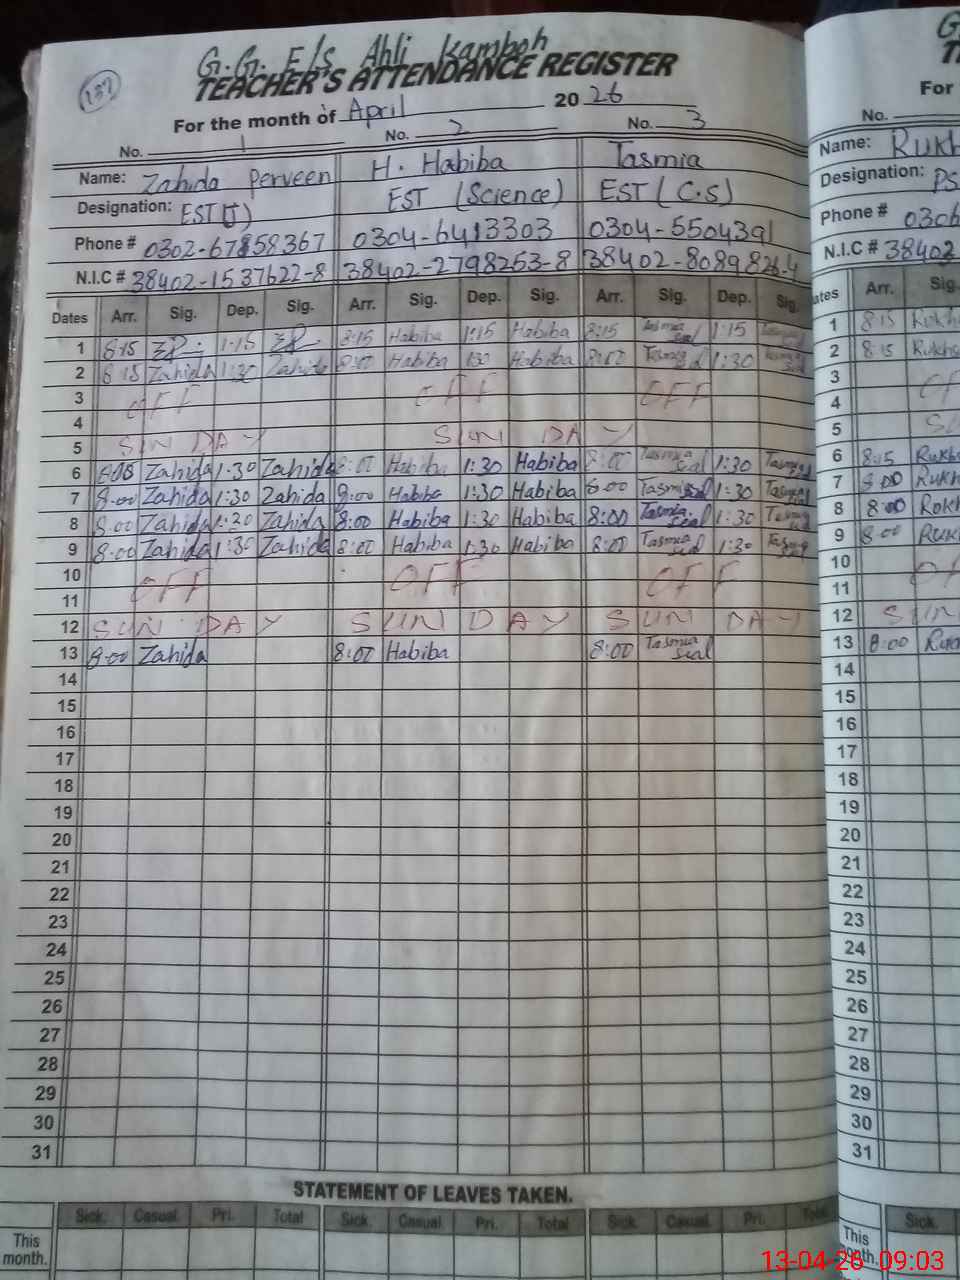 137
G.G. E/S Ahli Kamboh
TEACHER'S ATTENDANCE REGISTER
For the month of April 2026
No. 1 No. 2 No. 3
Name: Zahida Perveen H. Habiba Tasmia
Designation: EST (J) EST (Science) EST (C.S)
Phone # 0302-67858367 0304-6413303 0304-5504391
N.I.C # 38402-1537622-8 38402-2798253-8 38402-8089826-4
Dates Arr. Sig. Dep. Sig. Arr. Sig. Dep. Sig. Arr. Sig. Dep. Sig.
1 8:15 ZP 1:15 ZP 8:15 Habiba 1:15 Habiba 8:15 Tasmia 1:15
2 8:15 Zahida 1:30 Zahida 8:00 Habiba 1:30 Habiba 8:00 Tasmia 1:30
3 OFF OFF OFF
4
5 SUNDAY SUNDAY
6 Zahida 1:30 Zahida 8:00 Habiba 1:30 Habiba 8:00 Tasmia seal 1:30 Tasmia
7 8:00 Zahida 1:30 Zahida 8:00 Habiba 1:30 Habiba 8:00 Tasmia 1:30 Tasmia
8 8:00 Zahida 1:30 Zahida 8:00 Habiba 1:30 Habiba 8:00 Tasmia seal 1:30 Tasmia
9 8:00 Zahida 1:30 Zahida 8:00 Habiba 1:30 Habiba 8:00 Tasmia seal 1:30 Tasmia
10 OFF OFF OFF
11
12 SUNDAY SUNDAY SUNDAY
13 8:00 Zahida 8:00 Habiba 8:00 Tasmia seal
14
15
16
17
18
19
20
21
22
23
24
25
26
27
28
29
30
31
STATEMENT OF LEAVES TAKEN.
Sick. Casual. Pri. Total Sick. Casual. Pri. Total Sick. Casual. Pri. Total
This month.
For
No.
Name: Rukh
Designation: PS
Phone # 0306
N.I.C # 38402
ates Arr. Sig.
1 8:15
2 8:15
3
4
5
6 8:15
7 8:00
8 8:00
9 8:00
10
11
12 SUN
13 8:00
14
15
16
17
18
19
20
21
22
23
24
25
26
27
28
29
30
31
Sick.
This month.
13-04-26 09:03